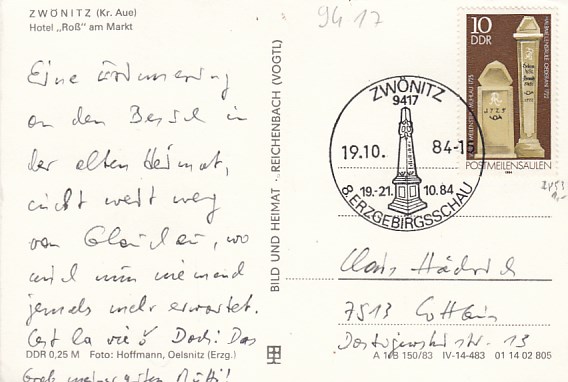 ZWÖNITZ (Kr. Aue)
Hotel „Roß" am Markt
Eine Erinnerung
an den Besuch in
der alten Heimat,
nicht weit weg
von Glauchau, wo
mich nun niemand
jemals mehr erwartet.
C'est la vie! Doch: Das
Grab meiner guten Mutti!
DDR 0,25 M Foto: Hoffmann, Oelsnitz (Erzg.)
BILD UND HEIMAT · REICHENBACH (VOGTL)
9417
10
DDR
POSTMEILENSÄULEN
ZWÖNITZ
9417
19.10. 84-15
19.-21. 10.84
8. ERZGEBIRGSSCHAU
7513 Cottbus
Dostojewskistr. 13
A 1/B 150/83 IV-14-483 01 14 02 805